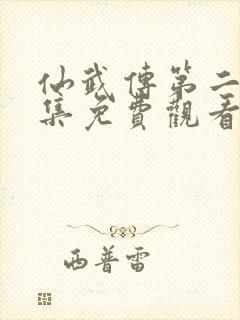 仙武傳第二
集免費觀看
西普雷